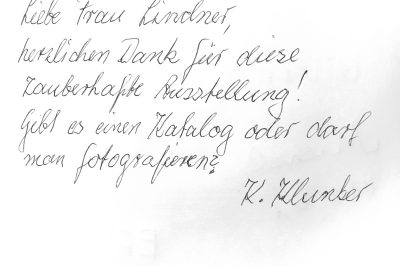 Liebe Frau Lindner,
herzlichen Dank für diese
zauberhafte Ausstellung!
Gibt es einen Katalog oder darf
man fotografieren?
K. Klunker